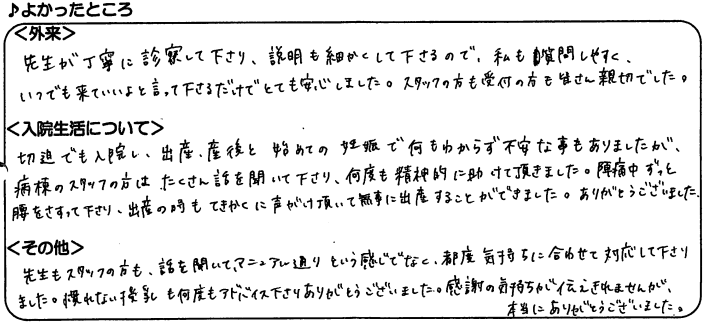 ♪よかったところ
＜外来＞
先生が丁寧に診察して下さり、説明も細かくして下さるので、私も質問しやすく、
いつでも来ていいよと言って下さるだけでとても安心しました。スタッフの方も受付の方も皆さん親切でした。
＜入院生活について＞
切迫でも入院し、出産、産後と始めての妊娠で何もわからず不安な事もありましたが、
病棟のスタッフの方はたくさん話を聞いて下さり、何度も精神的に助けて頂きました。陣痛中ずっと
腰をさすって下さり、出産の時もてきかくに声がけ頂いて無事に出産することができました。ありがとうございました。
＜その他＞
先生もスタッフの方も、話を聞いて、マニュアル通りという感じでなく、都度気持ちに合わせて対応して下さり
ました。慣れない授乳も何度もアドバイス下さりありがとうございました。感謝の気持ちが伝えきれませんが、
本当にありがとうございました。